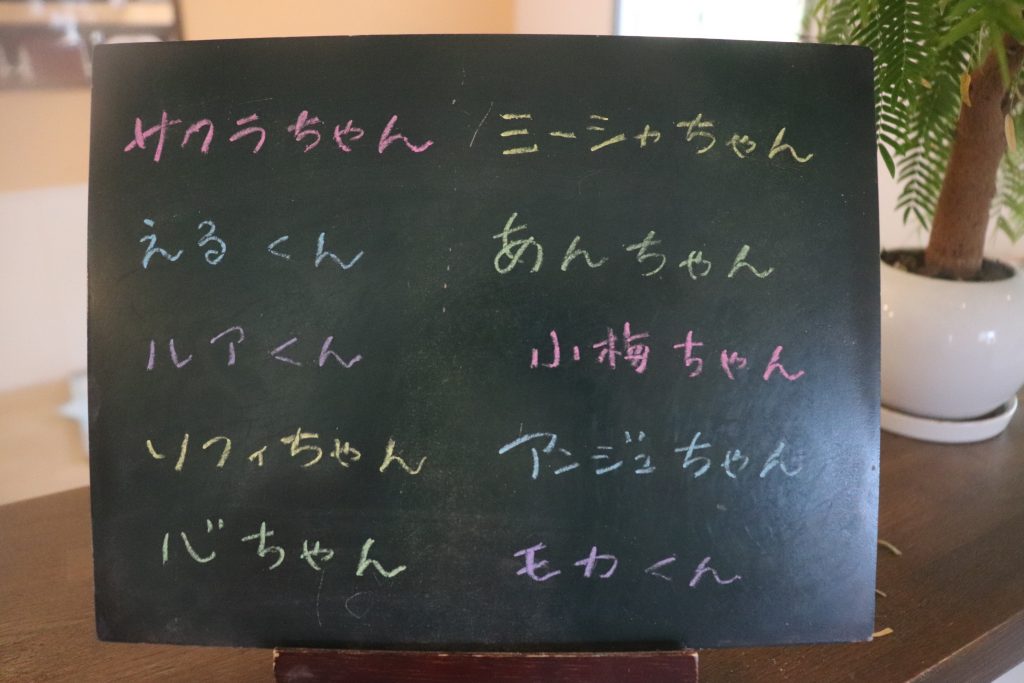 サクラちゃん
えるくん
ルアくん
ソフィちゃん
心ちゃん
ミーシャちゃん
あんちゃん
小梅ちゃん
アンジュちゃん
モカくん